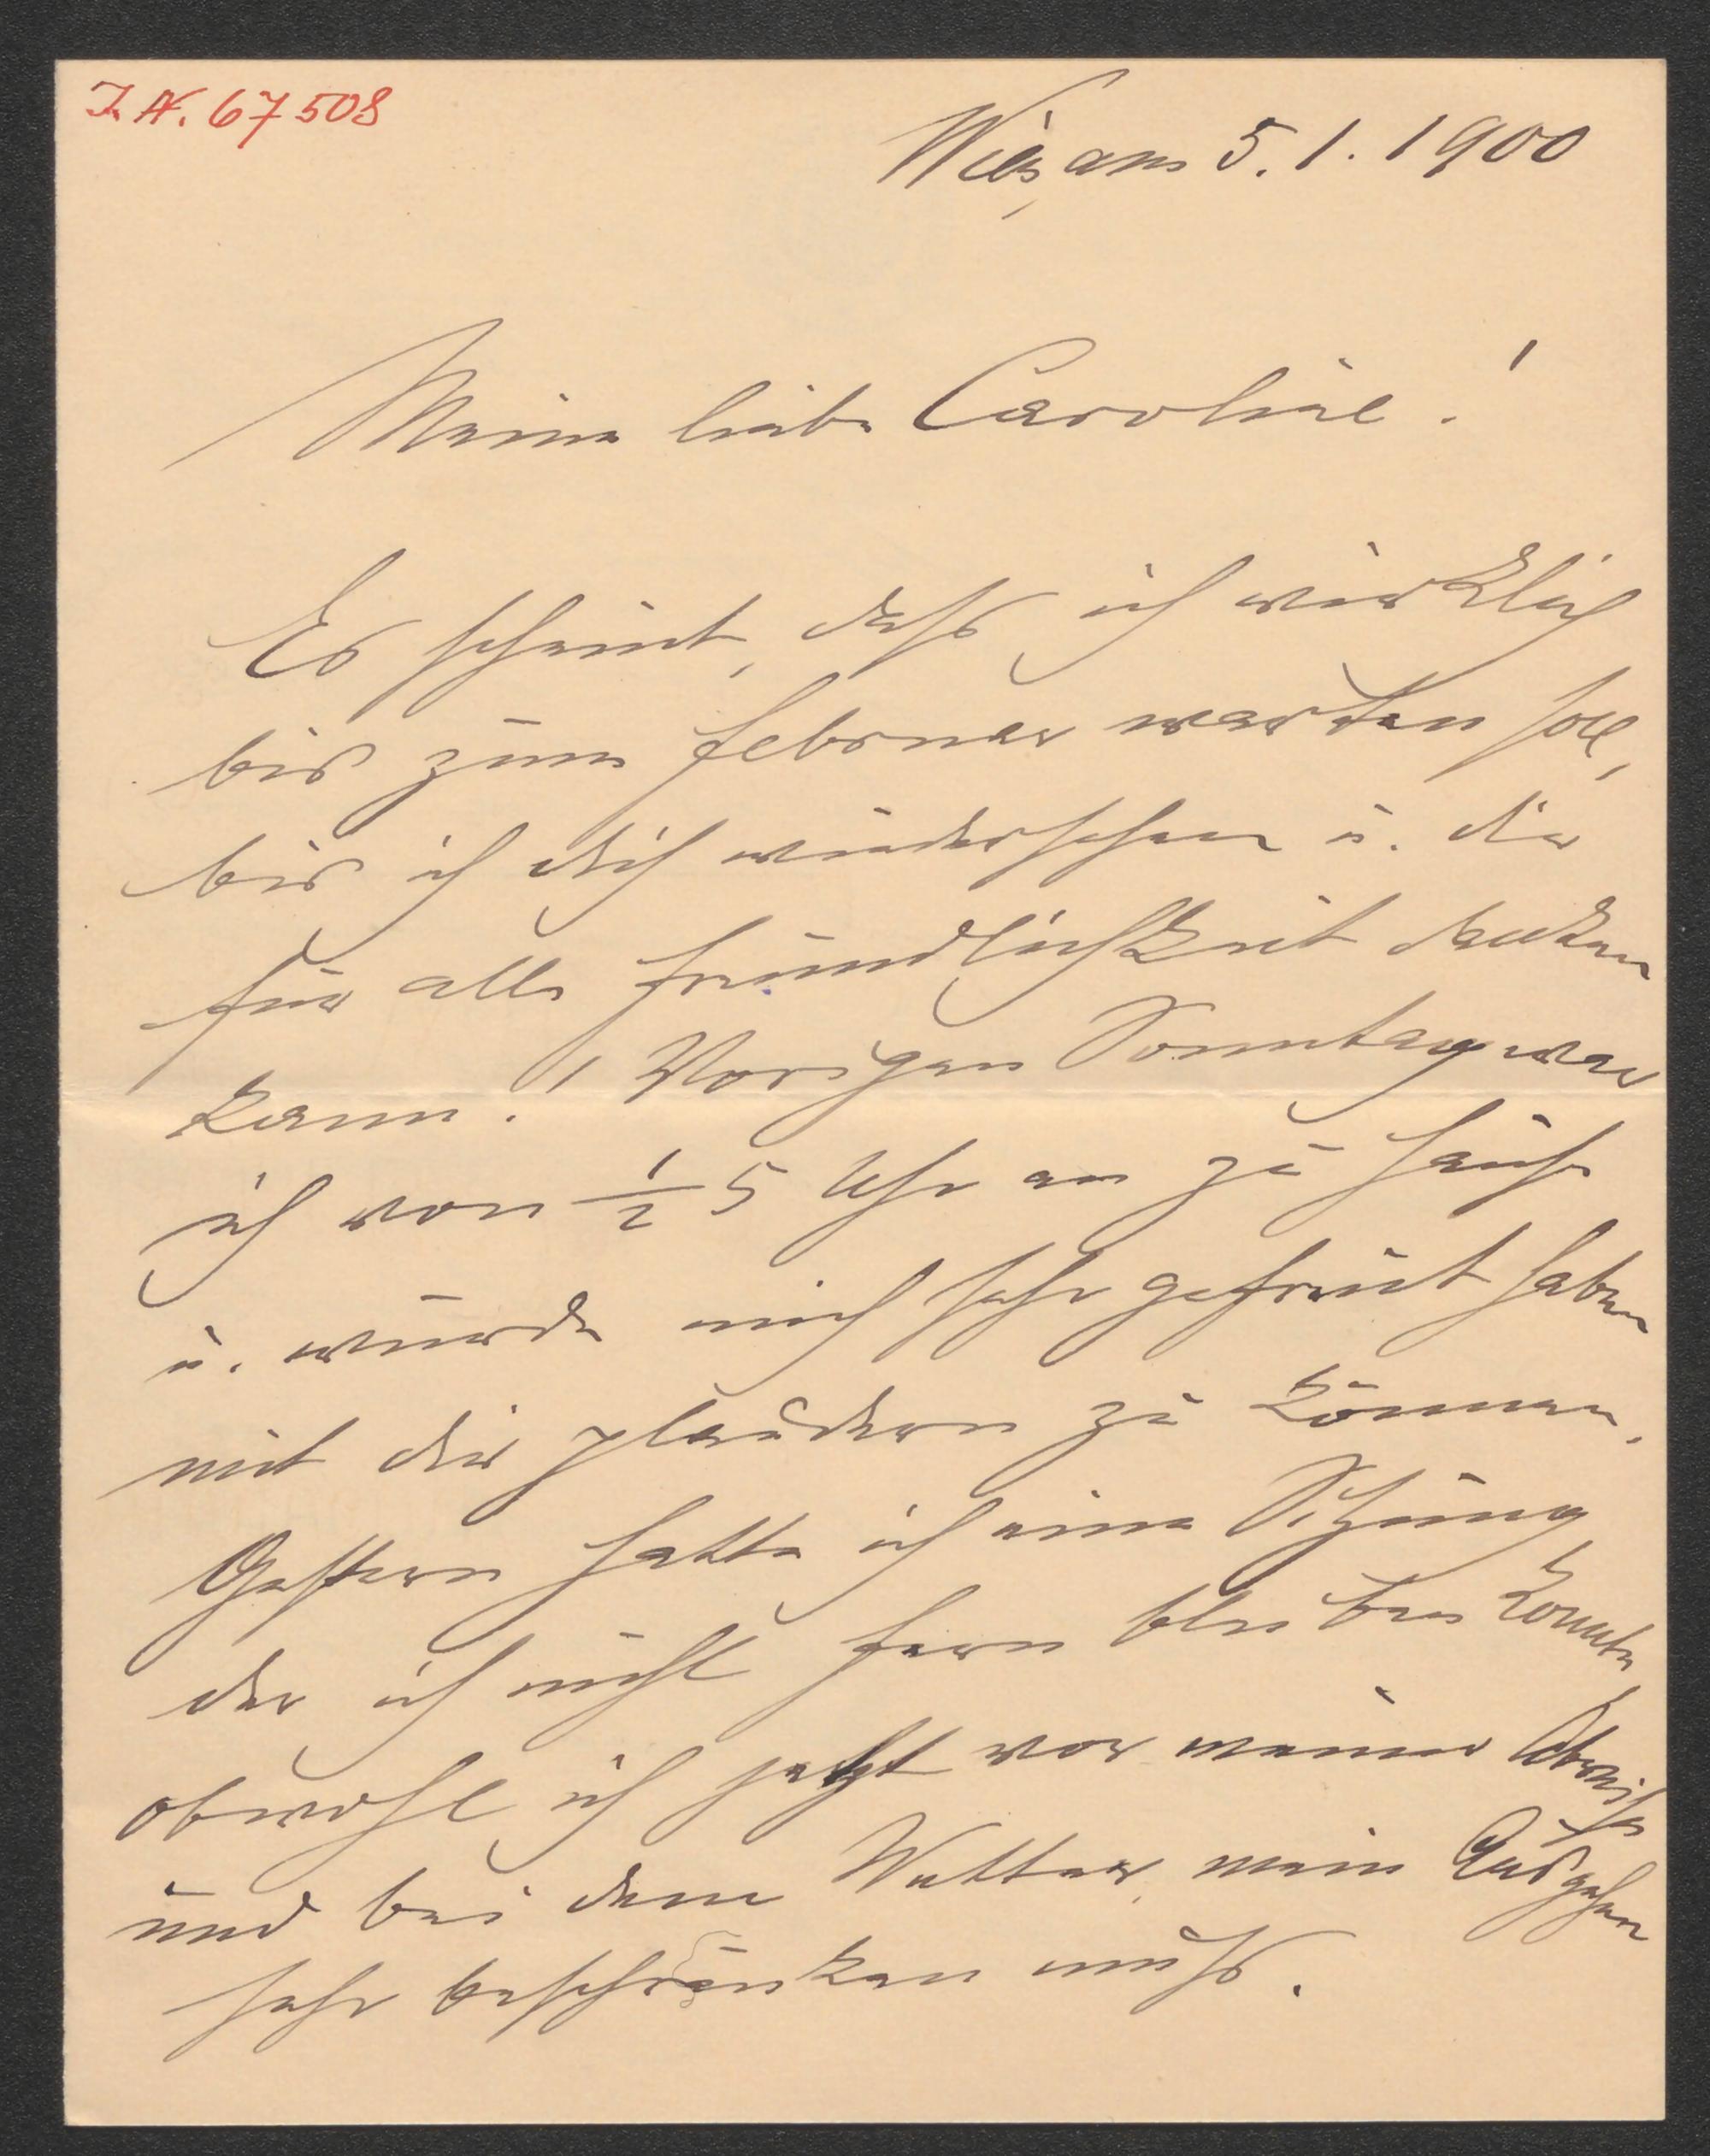 I. N. 67508
Wien, am 5. 1. 1900
Meine liebe Caroline!
Es scheint, dass ich wirklich
bis zum Februar warten soll,
bis ich dich wiedersehen u. dir
für alle Freundlichkeit danken
kann. Vorigen Sonntag war
ich von ½ 5 Uhr an zu Hause
u. würde mich sehr gefreut haben
mit dir plaudern zu können.
Gestern hatte ich eine Sitzung,
der ich nicht fern bleiben konnte
obwohl ich jetzt vor meiner Abreise
und bei dem Wetter mein Ausgehen
sehr beschränken muss.